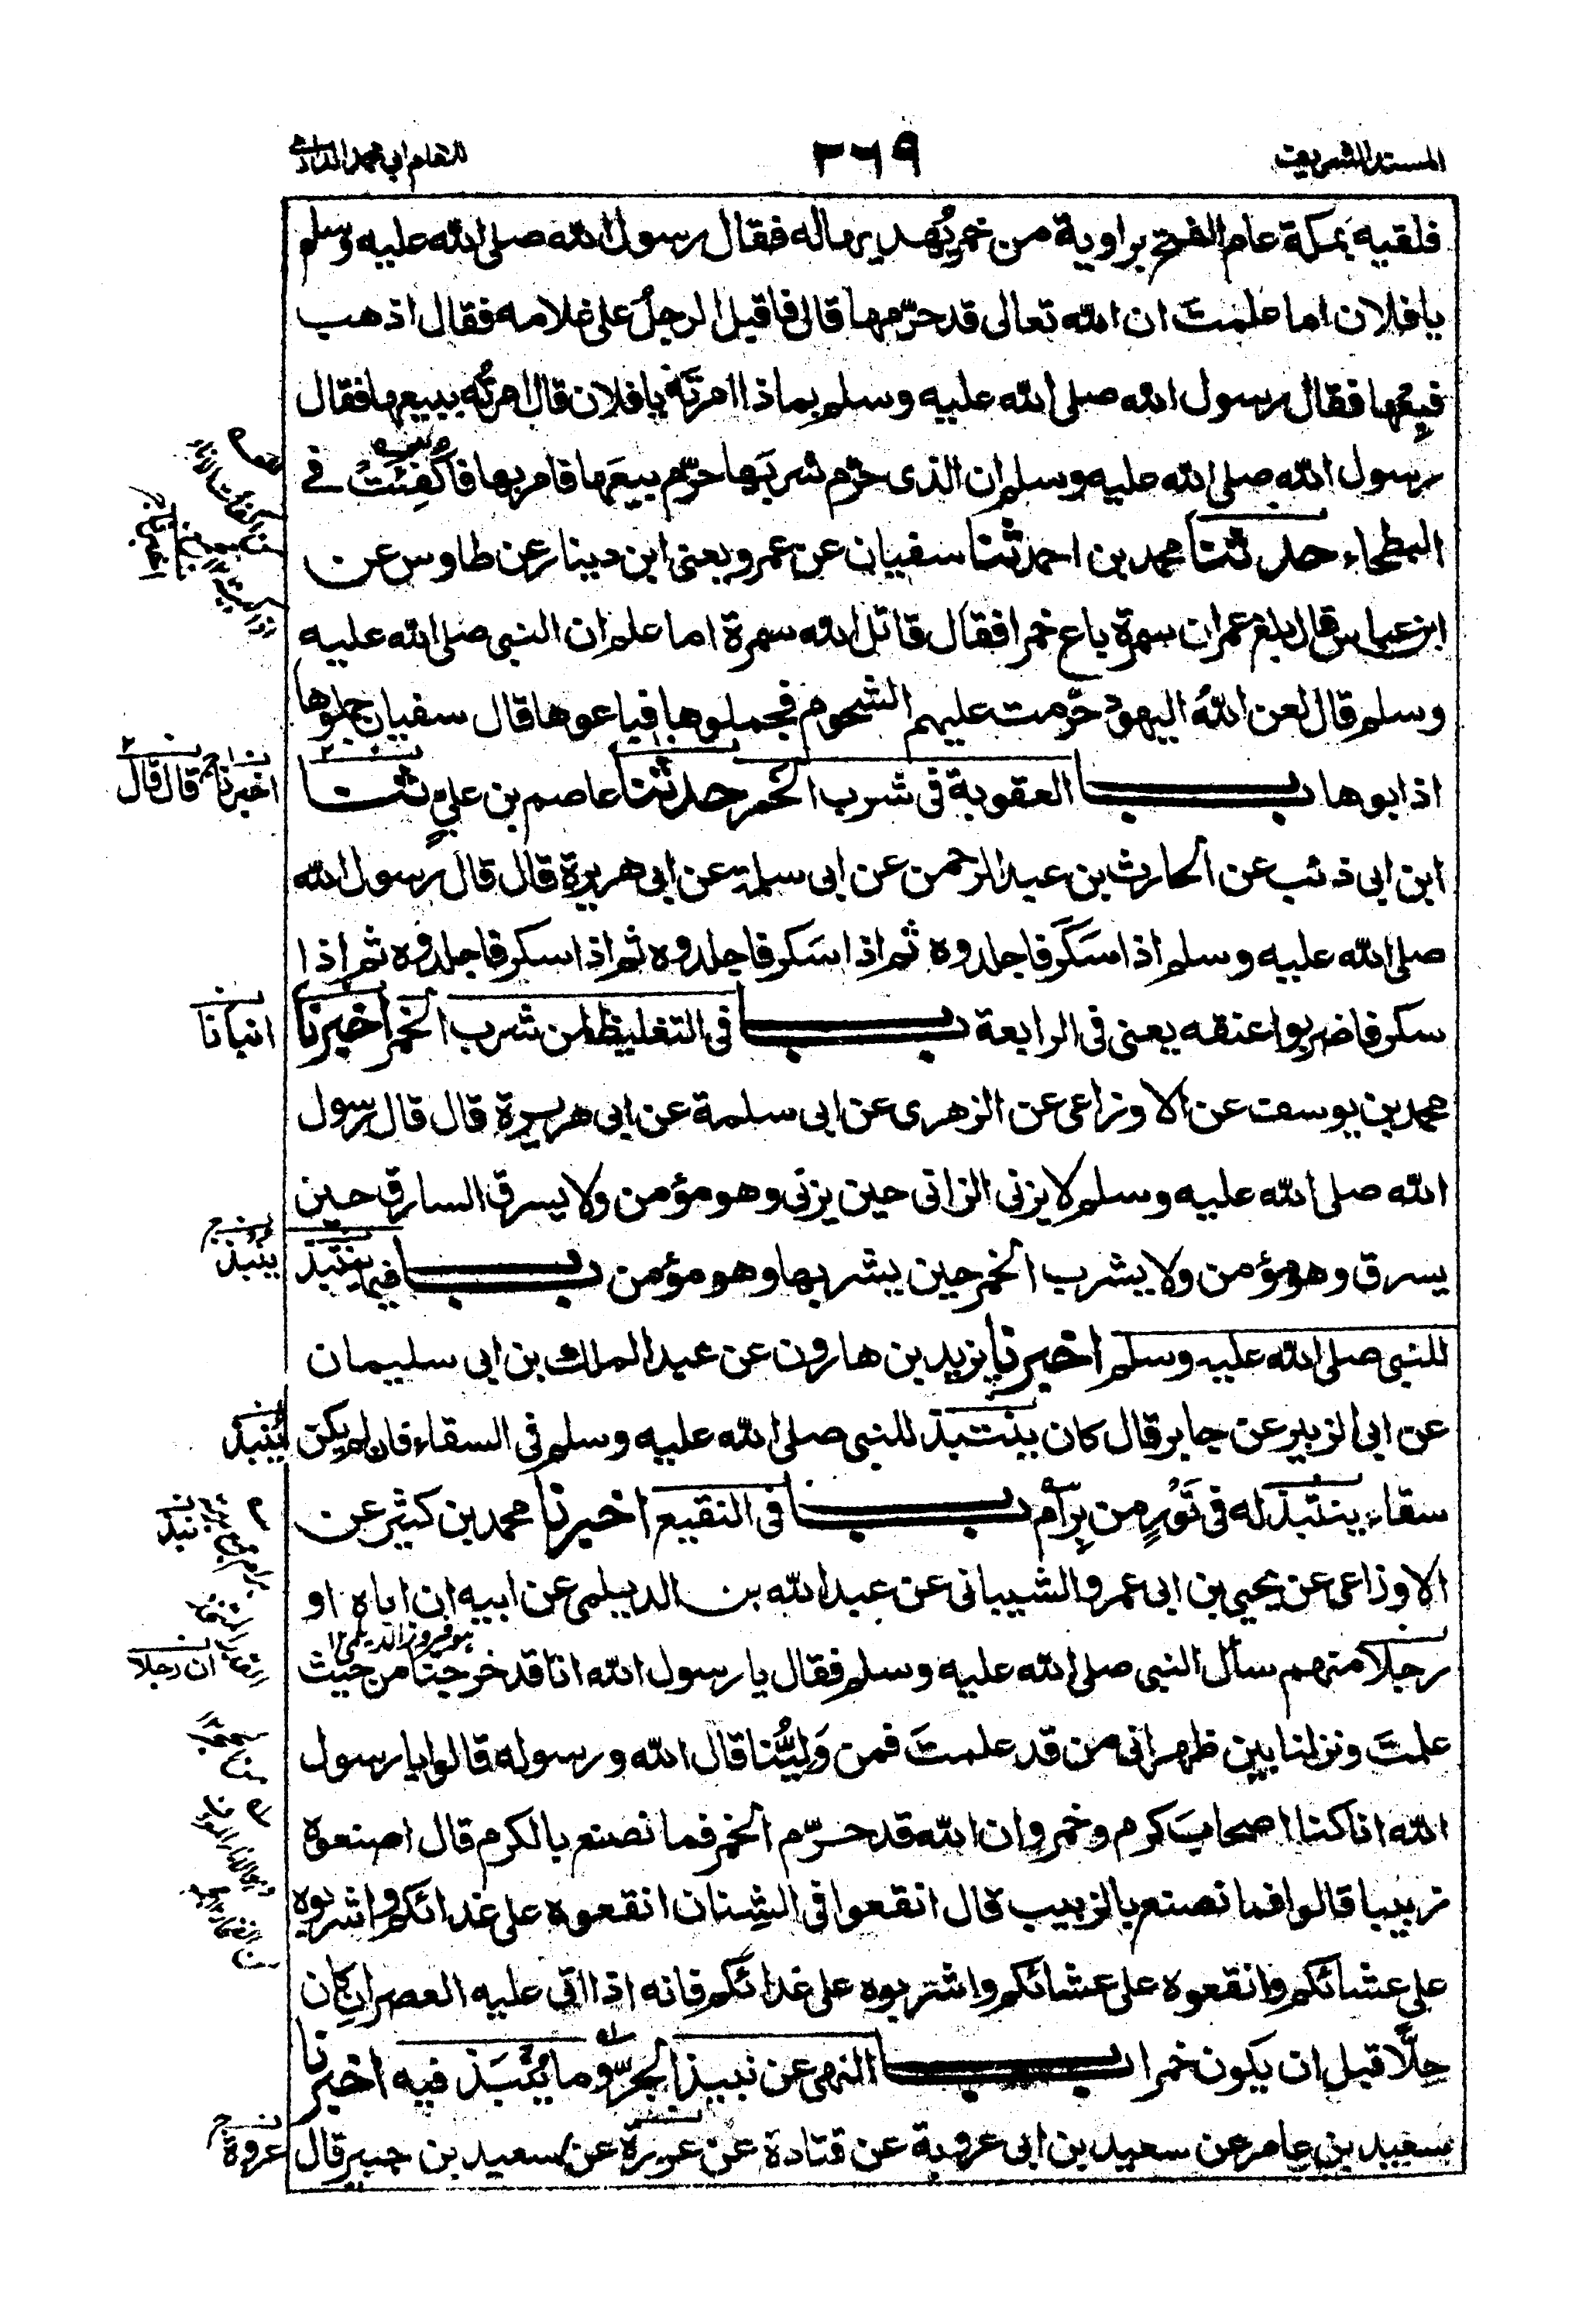 المسند الشريف
٢٦٩
للامام ابي محمد الدارمي
فلقيه بمكة عام الفتح براوية من خمر يُهديها له فقال رسول الله صلى الله عليه وسلم
يا فلان اما علمتَ ان الله تعالى قد حرّمها قال فاقبل الرجلُ على غلامه فقال اذهب
فبِعْها فقال رسول الله صلى الله عليه وسلم بماذا امرتَه يا فلان قال امرتُه ببيعها فقال
رسول الله صلى الله عليه وسلم ان الذى حرّم شربَها حرّم بيعَها فامر بها فاُكفِئَتْ فے
البطحاء حدثنا محمد بن احمد ثنا سفيان عن عمرو يعنى ابن دينار عن طاوس عن
ابن عباس قال بلغ عمر ان سمرة باع خمرا فقال قاتل الله سمرة اما علم ان النبى صلى الله عليه
وسلم قال لعن اللهُ اليهود حرّمت عليهم الشحوم فجملوها فباعوها قال سفيان جملوها
اذابوها باب العقوبة فى شرب الخمر حدثنا عاصم بن علىٍ ثنا
اخبرنا
قال قال
ابن ابى ذئب عن الحارث بن عبد الرحمن عن ابى سلمة عن ابى هريرة قال قال رسول الله
صلى الله عليه وسلم اذا سَكَرَ فاجلدوه ثم اذا سَكر فاجلدوه ثم اذا سكر فاجلدوه ثم اذا
سكر فاضربوا عنقه يعنى فى الرابعة باب فى التغليظ لمن شرب الخمر اخبرنا
انبانا
محمد بن يوسف عن الاوزاعى عن الزهرى عن ابى سلمة عن ابى هريرة قال قال رسول
الله صلى الله عليه وسلم لا يزنى الزانى حين يزنى وهو مؤمن ولا يسرق السارق حين
يسرق وهو مؤمن ولا يشرب الخمر حين يشربها وهو مؤمن باب فيما ينتبذ
ينبذ
للنبى صلى الله عليه وسلم اخبرنا يزيد بن هارون عن عبد الملك بن ابى سليمان
عن ابى الزبير عن جابر قال كان ينتبذ للنبى صلى الله عليه وسلم فى السقاء فان لم يكن
يُنبذ
سقاء ينتبذ له فى تَوْرٍ من بِرام باب فى النقيع اخبرنا محمد بن كثير عن
نبذ
الاوزاعى عن يحيى بن ابى عمرو الشيبانى عن عبد الله بن الديلمى عن ابيه ان اباه او
هو فيروز الديلمى ١٢
رجلا منهم سأل النبى صلى الله عليه وسلم فقال يا رسول الله انا قد خرجنا من حيث
ان رجلا
علمتَ ونزلنا بين ظهرانى من قد علمتَ فمن وَلِيُّنا قال الله ورسوله قالوا يا رسول
الله انا كنا اصحابَ كرم وخمر وان الله قد حرّم الخمر فما نصنع بالكرم قال اصنعوه
زبيبا قالوا فما نصنع بالزبيب قال انقعوا فى الشِنان انقعوه على غدائكم واشربوه
على عشائكم وانقعوه على عشائكم واشربوه على غدائكم فانه اذا اتى عليه العصران كان
حِلًّا قبل ان يكون خمرا باب النهى عن نبيذ الجرّ وما يُنْبَذ فيه اخبرنا
سعيد بن عامر عن سعيد بن ابى عروبة عن قتادة عن عزرة عن سعيد بن جبير قال
عروة